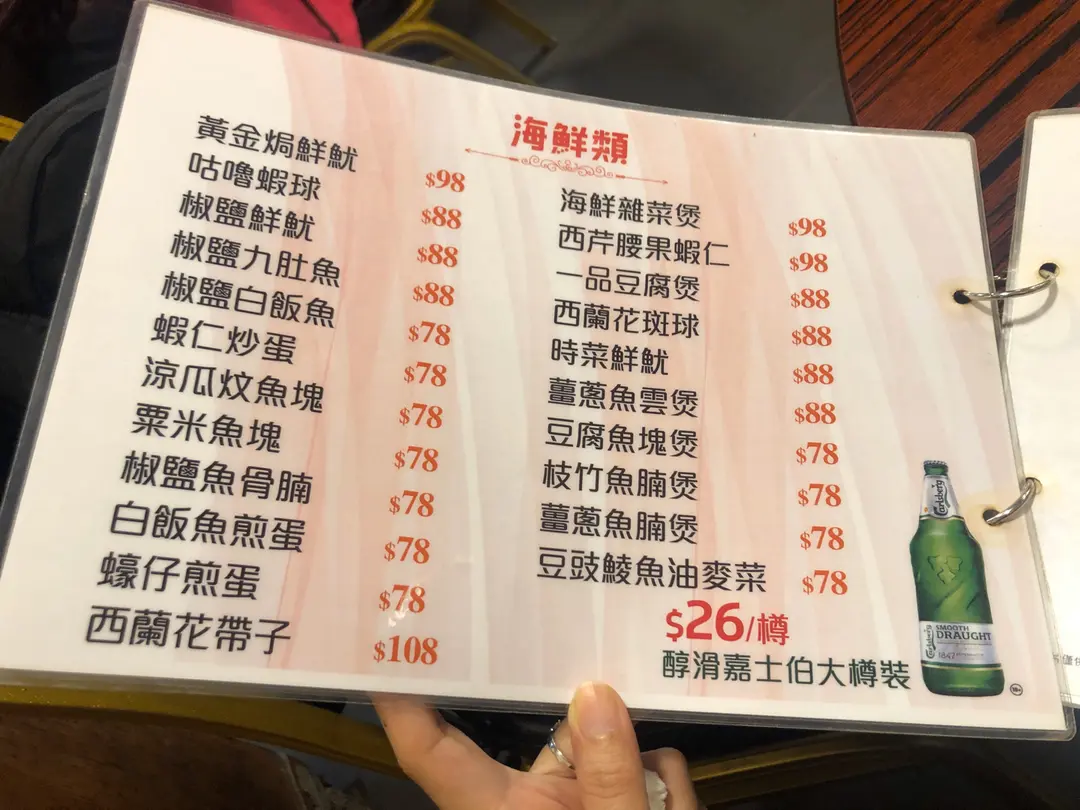 海鮮類
黃金焗鮮魷 $98
咕嚕蝦球 $88
椒鹽鮮魷 $88
椒鹽九肚魚 $88
椒鹽白飯魚 $78
蝦仁炒蛋 $78
涼瓜炆魚塊 $78
粟米魚塊 $78
椒鹽魚骨腩 $78
白飯魚煎蛋 $78
蠔仔煎蛋 $78
西蘭花帶子 $108
海鮮雜菜煲 $98
西芹腰果蝦仁 $98
一品豆腐煲 $88
西蘭花斑球 $88
時菜鮮魷 $88
薑蔥魚雲煲 $88
豆腐魚塊煲 $78
枝竹魚腩煲 $78
薑蔥魚腩煲 $78
豆豉鯪魚油麥菜 $78
$26/樽
醇滑嘉士伯大樽裝
Carlsberg
Carlsberg
SMOOTH
DRAUGHT
1847
18+